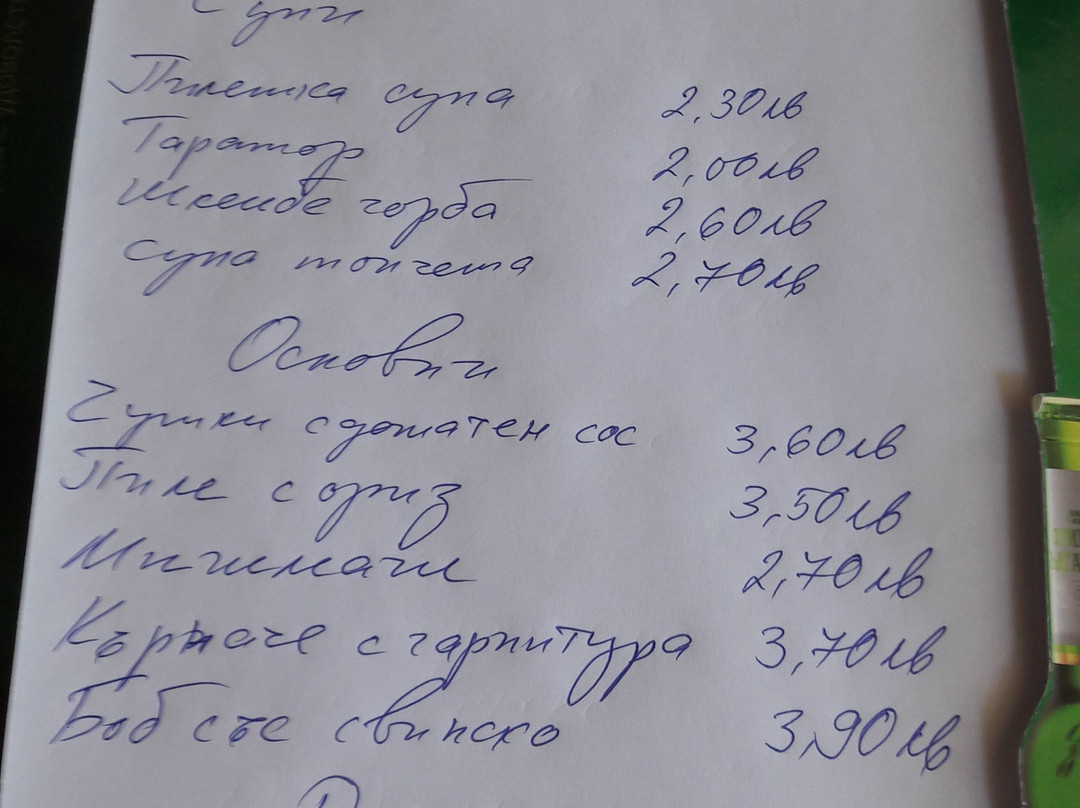 Супи
Пилешка супа 2,30лв
Таратор 2,00лв
Шкембе чорба 2,60лв
Супа топчета 2,70лв
Основни
Чушки с доматен сос 3,60лв
Пиле с ориз 3,50лв
Миш маш 2,70лв
Кърначе с гарнитура 3,70лв
Боб със свинско 3,90лв